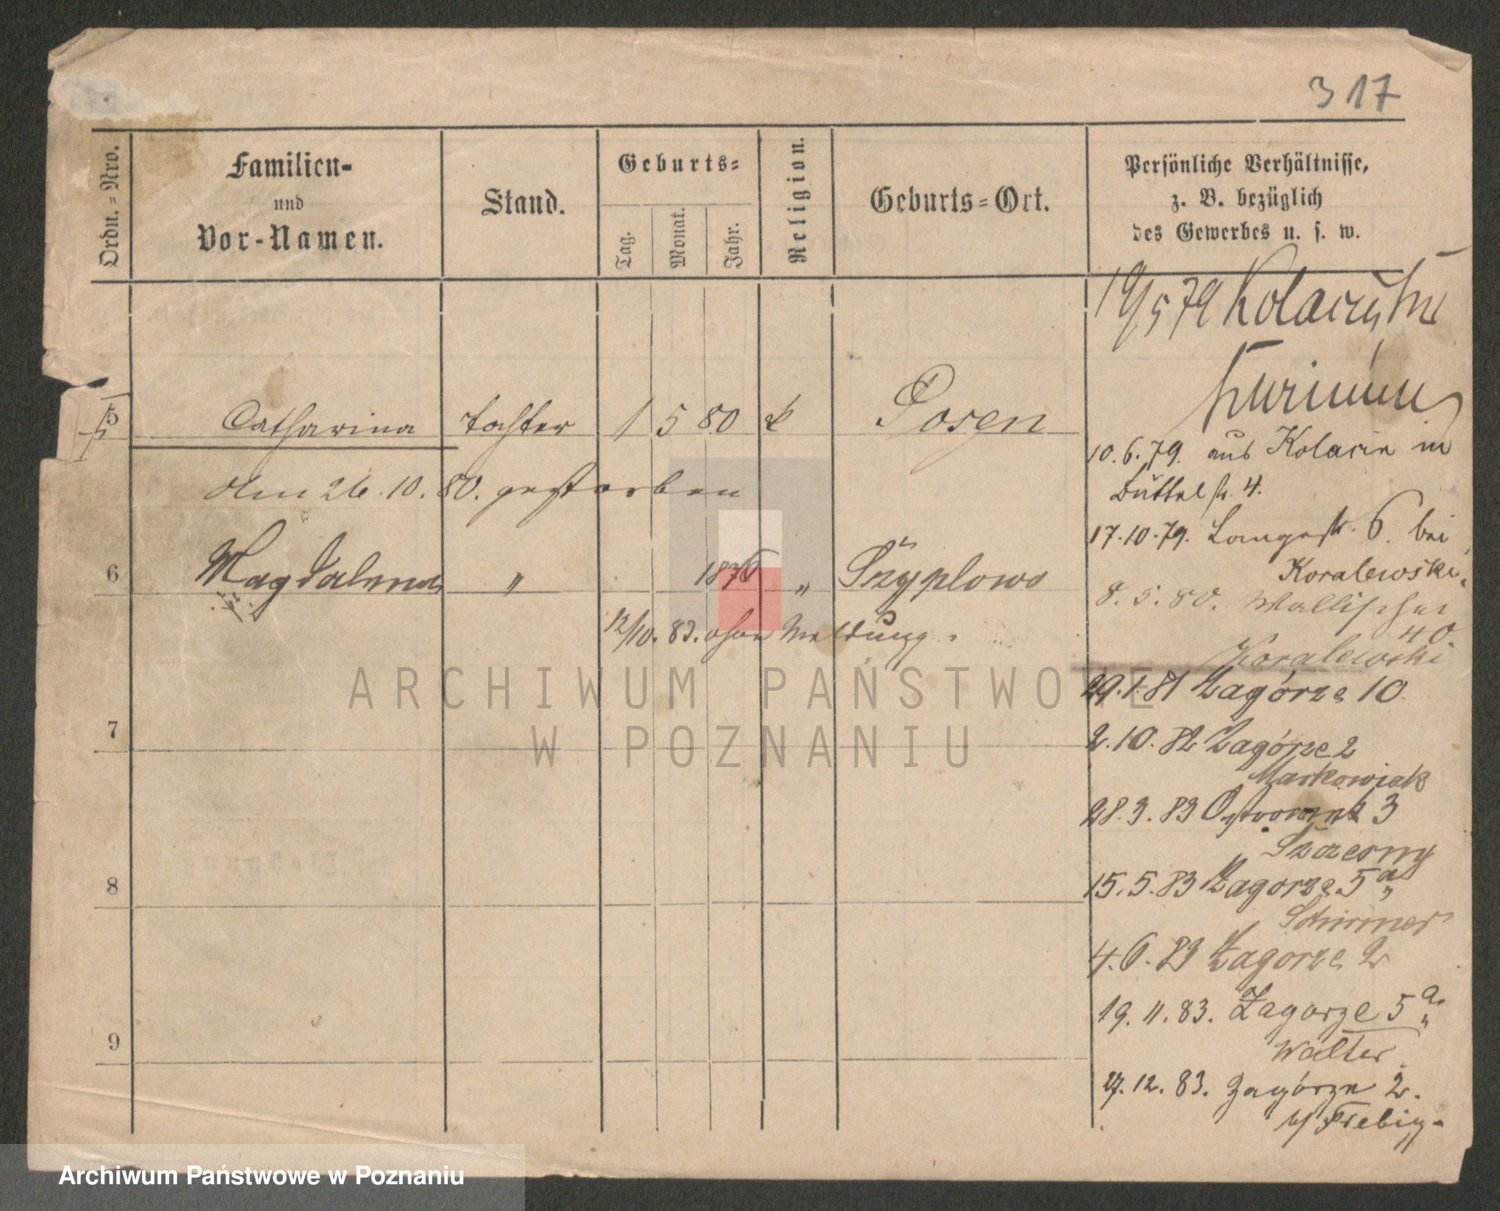 317
Ordn.=Nro.
Familien-
und
Vor-Namen.
Stand.
Geburts=
Tag.
Monat.
Jahr.
Religion.
Geburts=Ort.
Persönliche Verhältnisse,
z. B. bezüglich
des Gewerbes u. s. w.
19/5 79
5 Catharina Tochter 1 5 80 k Posen
den 26.10.80. gestorben
6 Magdalena " 1876 " Szyplowo
12/10. 83. ohne Meldung.
7
8
9
10.6.79. aus in
Büttelstr. 4.
17.10.79. Langestr. 6. bei
Koralewski.
8.5.80. Wallischei
40.
Koralewski
29.1.81 Zagórze 10.
2.10.82 Zagórze 2
Markowiak
28.3.83 Ostrowek 3
15.5.83 Zagorze 5a
Schirmer
4.6.83 Zagorze 2
19.11.83. Zagorze 5a.
Walter
27.12.83. Zagórze 2.
b/ Frebig.
ARCHIWUM PAŃSTWOWE
W POZNANIU
Archiwum Państwowe w Poznaniu